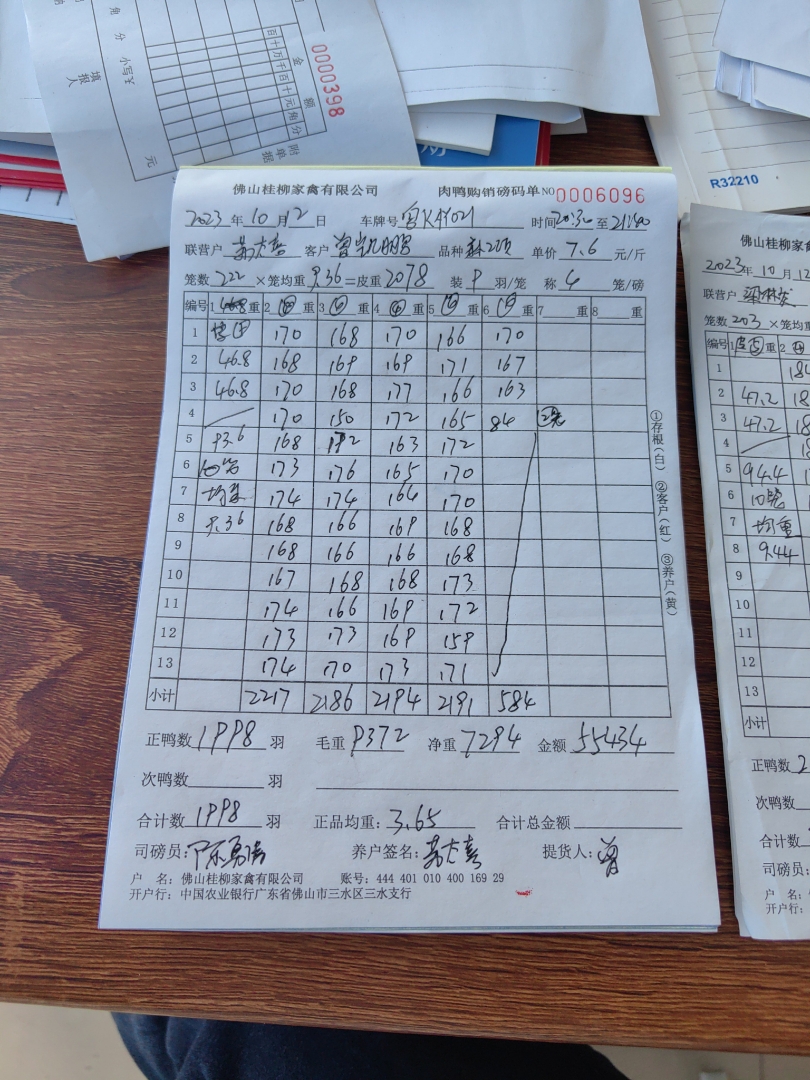 0000398
额
金
百十万千百十元角分
小写¥
填报人
附单据
元
R32210
佛山桂柳家禽有限公司 肉鸭购销磅码单 NO 0006096
2023年10月12日 车牌号 时间20:30至21:40
联营户 客户 品种 单价7.6元/斤
笼数222×笼均重9.36=皮重2078 装9羽/笼 称4笼/磅
编号 1 重 2 重 3 重 4 重 5 重 6 重 7 重 8 重
1 170 168 170 166 170
2 46.8 168 169 169 171 167
3 46.8 170 168 177 166 163
4 170 150 172 165 84
5 93.6 168 172 163 172
6 10笼 173 176 165 170
7 均重 174 174 164 170
8 9.36 168 166 169 168
9 168 166 166 168
10 167 168 168 173
11 174 166 169 172
12 173 173 169 159
13 174 170 173 171
小计 2217 2186 2194 2191 584
①存根(白) ②客户(红) ③养户(黄)
正鸭数1998羽 毛重9372 净重7294 金额55434
次鸭数 羽
合计数1998羽 正品均重:3.65 合计总金额
司磅员: 养户签名: 提货人:曾
户 名:佛山桂柳家禽有限公司 账号:444 401 010 400 169 29
开户行:中国农业银行广东省佛山市三水区三水支行
佛山桂柳家禽
2023年10月12
联营户
笼数203×笼均重
编号 1 重 2
1
2 47.2
3 47.2
4
5 94.4
6 10笼
7 均重
8 9.44
9
10
11
12
13
小计
正鸭数
次鸭数
合计数
司磅员:
户 名:
开户行: